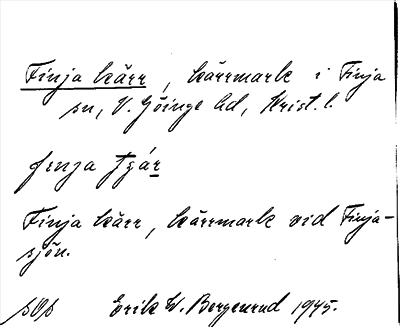 Finja kärr, kärrmark i Finja
sn, V. Göinge hd, Krist. l.
Finja kärr, kärrmark vid Finja-
sjön.
Erik W. Bergenrud 1945.